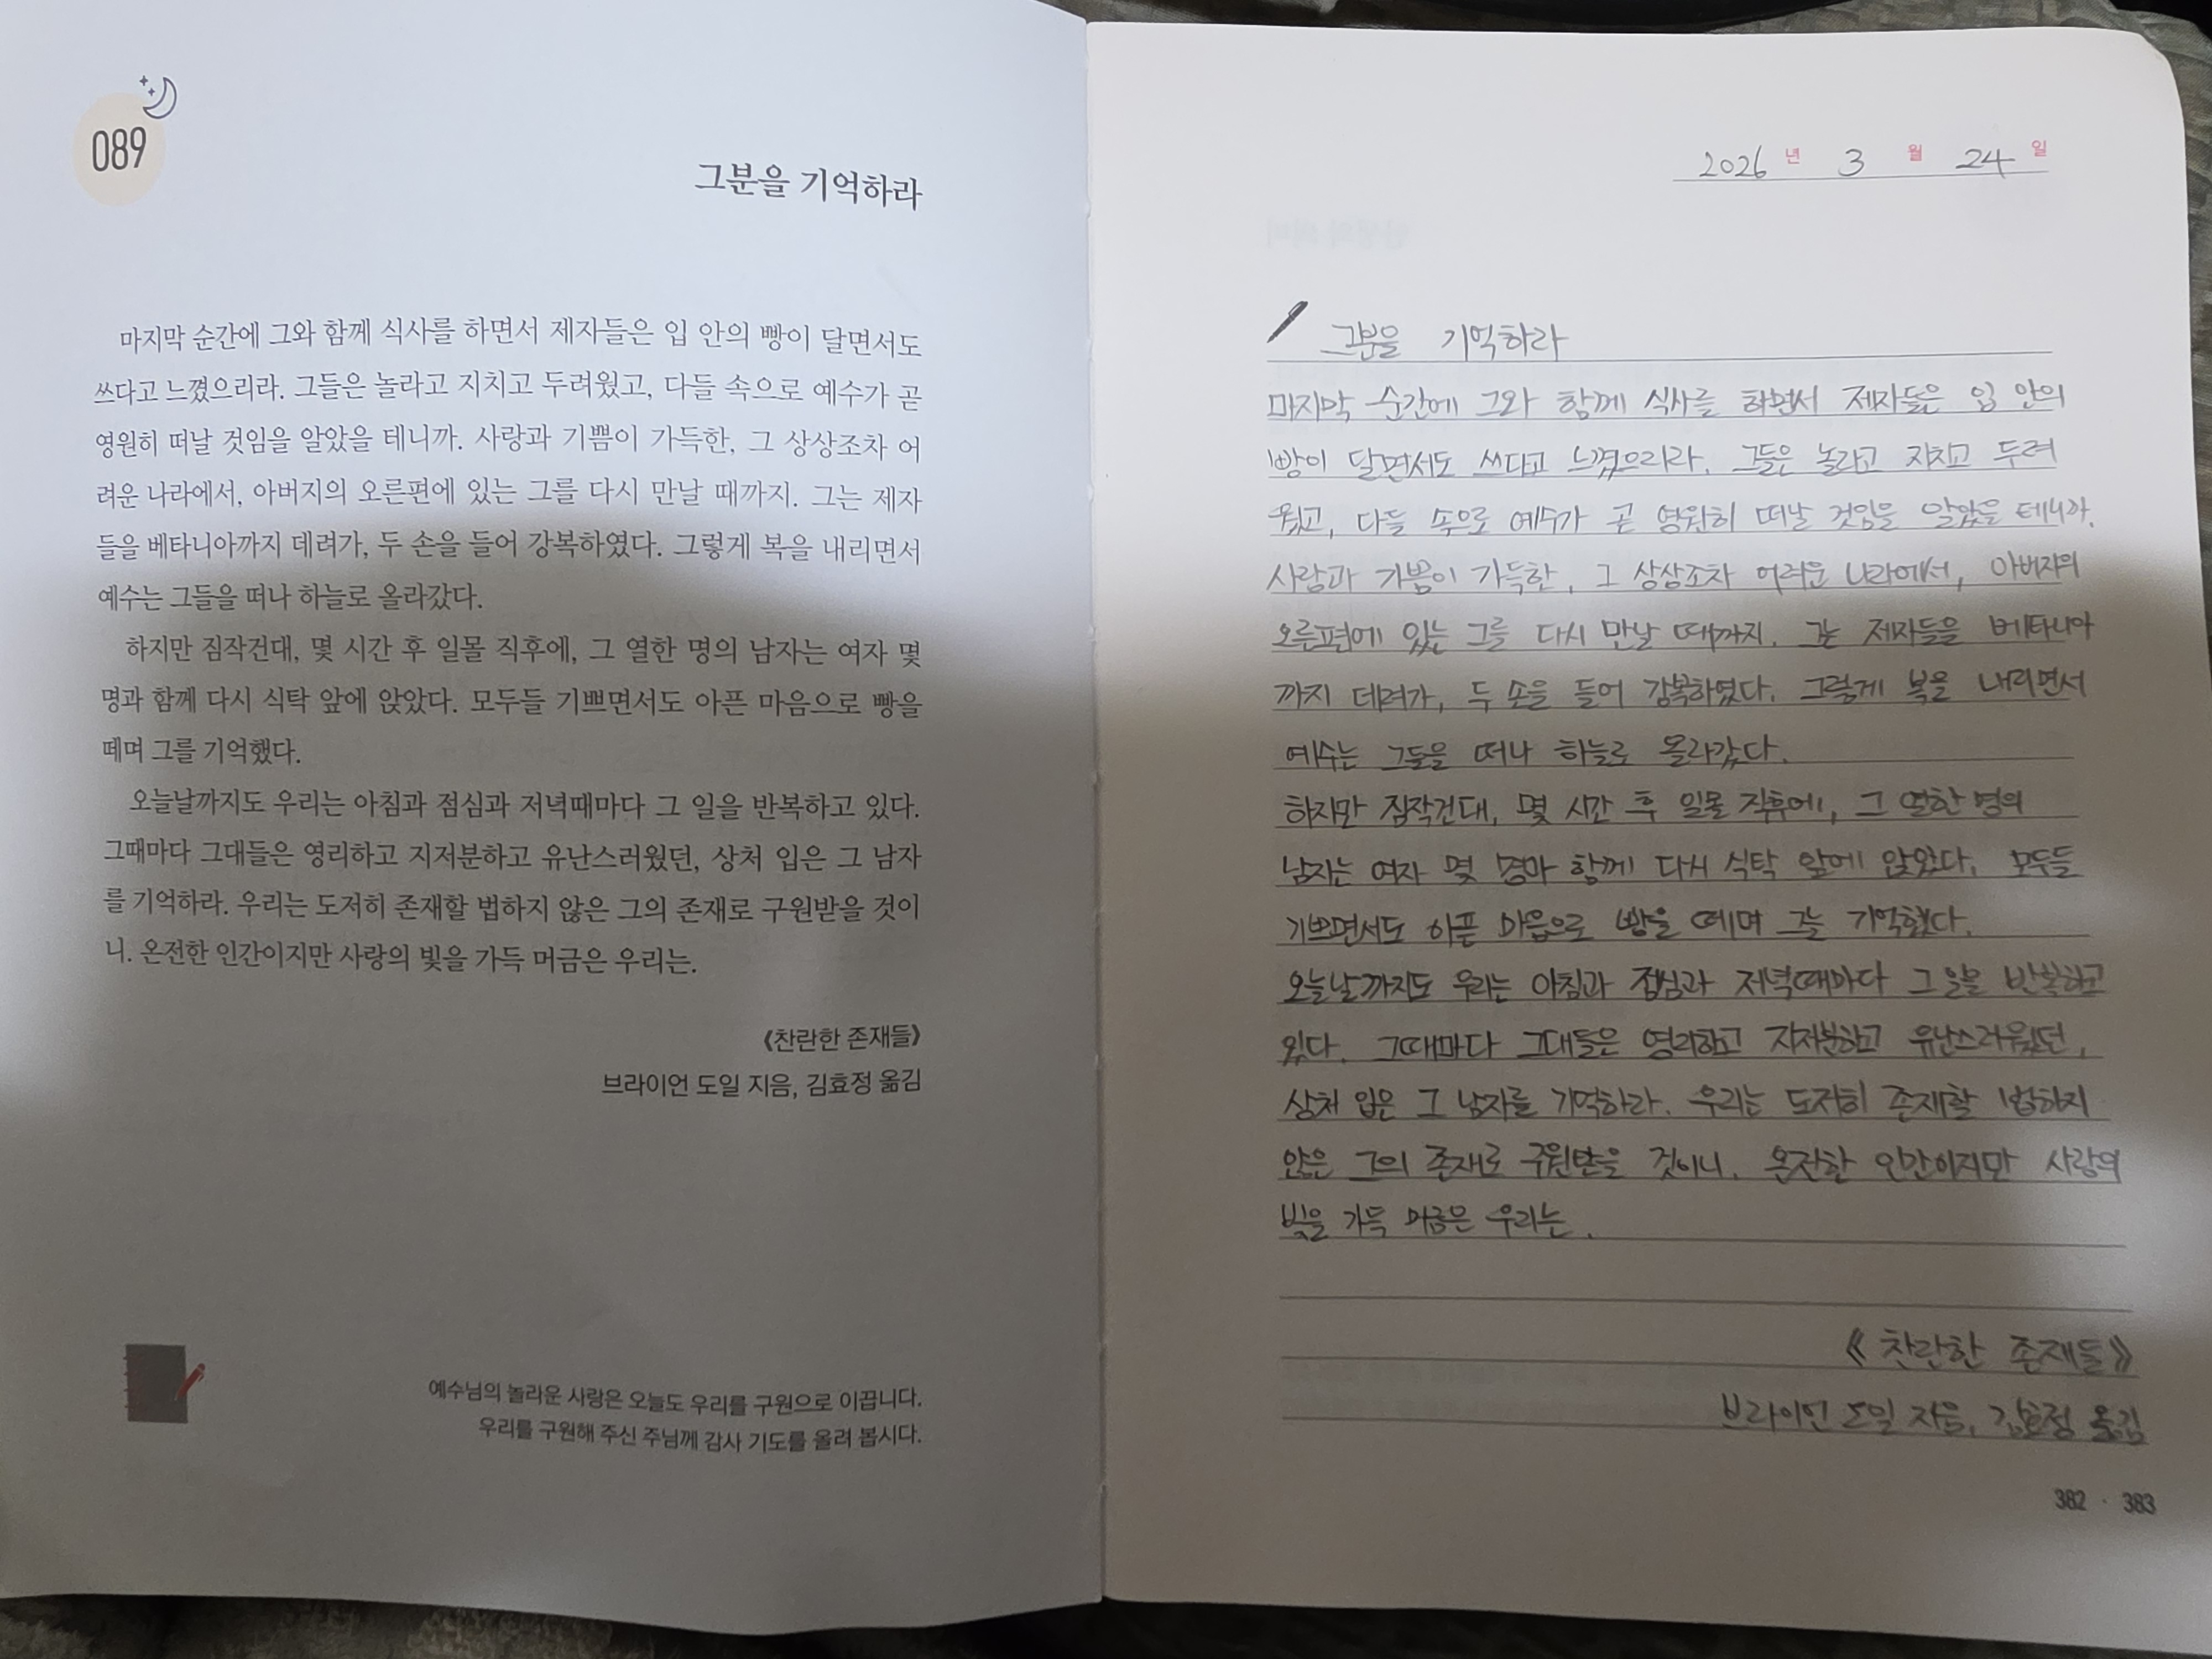 089
그분을 기억하라
마지막 순간에 그와 함께 식사를 하면서 제자들은 입 안의 빵이 달면서도
쓰다고 느꼈으리라. 그들은 놀라고 지치고 두려웠고, 다들 속으로 예수가 곧
영원히 떠날 것임을 알았을 테니까. 사랑과 기쁨이 가득한, 그 상상조차 어
려운 나라에서, 아버지의 오른편에 있는 그를 다시 만날 때까지. 그는 제자
들을 베타니아까지 데려가, 두 손을 들어 강복하였다. 그렇게 복을 내리면서
예수는 그들을 떠나 하늘로 올라갔다.
하지만 짐작건대, 몇 시간 후 일몰 직후에, 그 열한 명의 남자는 여자 몇
명과 함께 다시 식탁 앞에 앉았다. 모두들 기쁘면서도 아픈 마음으로 빵을
떼며 그를 기억했다.
오늘날까지도 우리는 아침과 점심과 저녁때마다 그 일을 반복하고 있다.
그때마다 그대들은 영리하고 지저분하고 유난스러웠던, 상처 입은 그 남자
를 기억하라. 우리는 도저히 존재할 법하지 않은 그의 존재로 구원받을 것이
니. 온전한 인간이지만 사랑의 빛을 가득 머금은 우리는.
《찬란한 존재들》
브라이언 도일 지음, 김효정 옮김
예수님의 놀라운 사랑은 오늘도 우리를 구원으로 이끕니다.
우리를 구원해 주신 주님께 감사 기도를 올려 봅시다.
2026 년 3 월 24 일
그분을 기억하라
마지막 순간에 그와 함께 식사를 하면서 제자들은 입 안의
빵이 달면서도 쓰다고 느꼈으리라. 그들은 놀라고 지치고 두려
웠고, 다들 속으로 예수가 곧 영원히 떠날 것임을 알았을 테니까.
사랑과 기쁨이 가득한, 그 상상조차 어려운 나라에서, 아버지의
오른편에 있는 그를 다시 만날 때까지. 그는 제자들을 베타니아
까지 데려가, 두 손을 들어 강복하였다. 그렇게 복을 내리면서
예수는 그들을 떠나 하늘로 올라갔다.
하지만 짐작건대, 몇 시간 후 일몰 직후에, 그 열한 명의
남자는 여자 몇 명과 함께 다시 식탁 앞에 앉았다. 모두들
기쁘면서도 아픈 마음으로 빵을 떼며 그를 기억했다.
오늘날까지도 우리는 아침과 점심과 저녁때마다 그 일을 반복하고
있다. 그때마다 그대들은 영리하고 지저분하고 유난스러웠던,
상처 입은 그 남자를 기억하라. 우리는 도저히 존재할 법하지
않은 그의 존재로 구원받을 것이니. 온전한 인간이지만 사랑의
빛을 가득 머금은 우리는.
《찬란한 존재들》
브라이언 도일 지음, 김효정 옮김
382 · 383